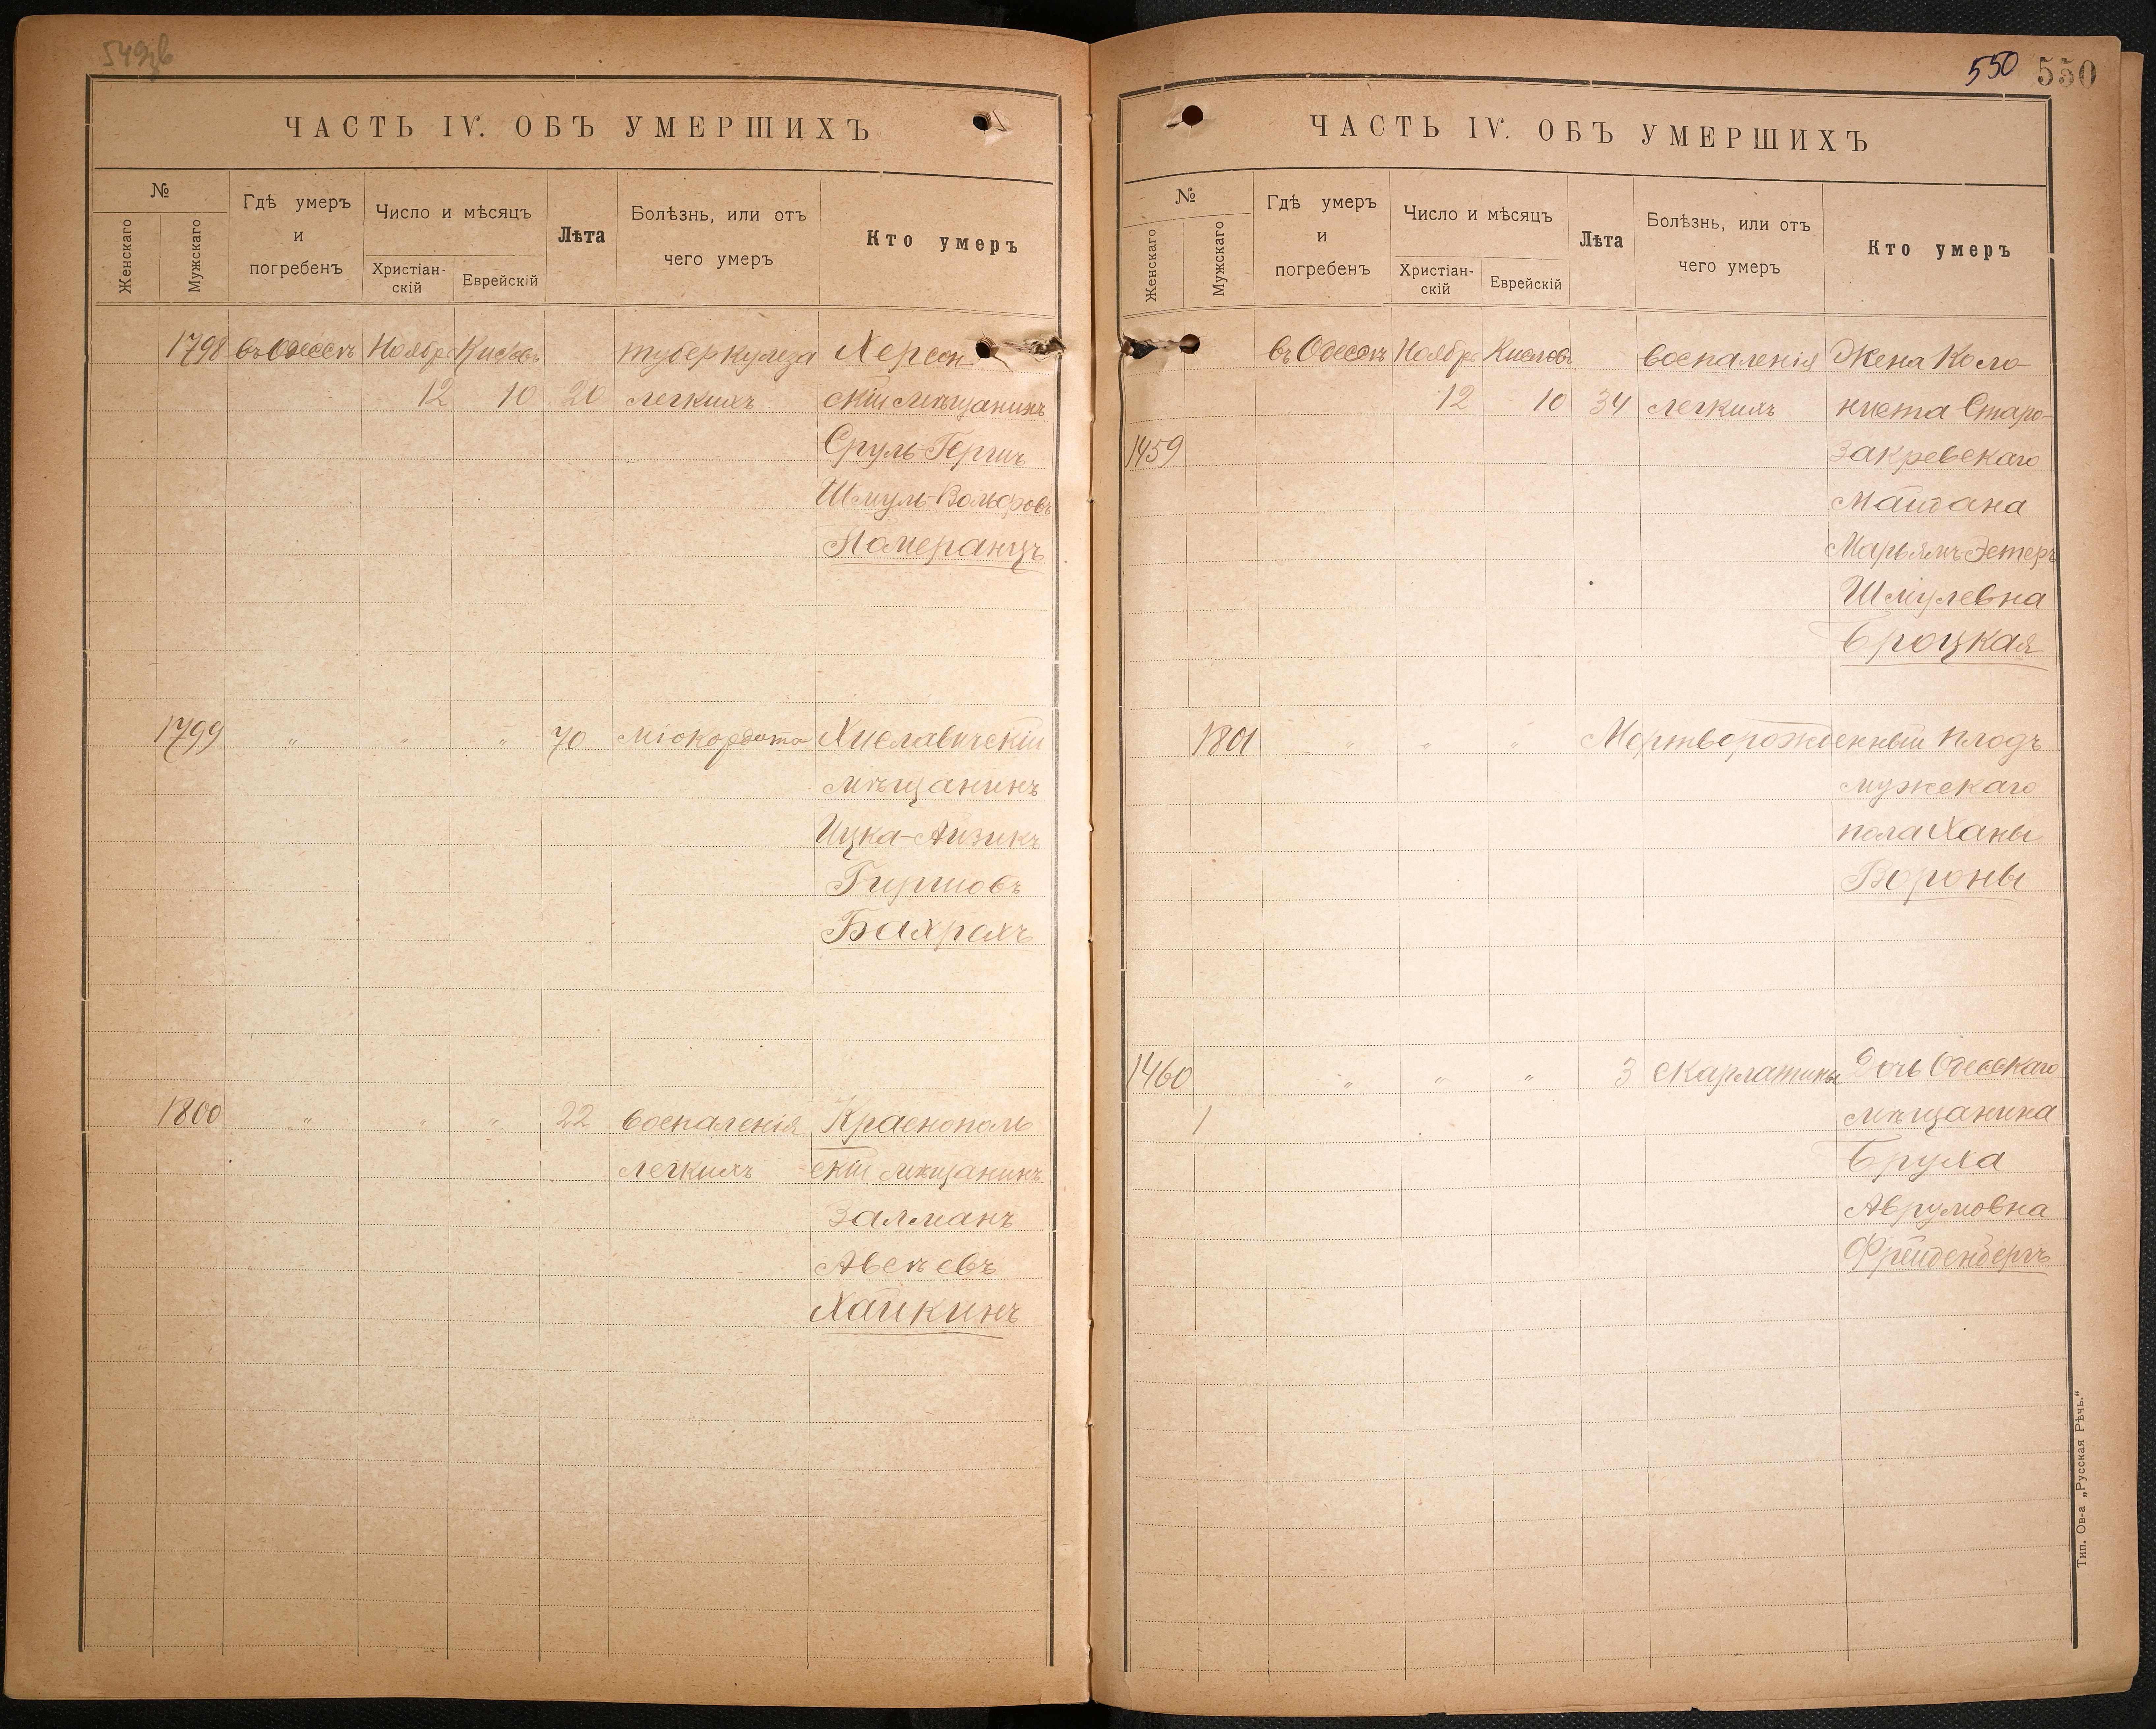 549об
ЧАСТЬ IV. ОБЪ УМЕРШИХЪ
№
Женскаго
Мужскаго
Гдѣ умеръ
и
погребенъ
Число и мѣсяцъ
Христіан-
скій
Еврейскій
Лѣта
Болѣзнь, или отъ
чего умеръ
Кто умеръ
1798 въ Одессѣ Ноября Кислевъ туберкулеза Херсон-
12 10 20 легкихъ скій мѣщанинъ
Сруль-Гершъ
Шмуль-Вольфовъ
Померанцъ
1799 " " " 70 міокардита Хиславичскій
мѣщанинъ
Ицка-Айзикъ
Гиршовъ
Бахрахъ
1800 " " " 22 воспаленія Краснополь
легкихъ -скій мѣщанинъ
Залманъ
Авсѣевъ
Хайкинъ
550 550
ЧАСТЬ IV. ОБЪ УМЕРШИХЪ
№
Женскаго
Мужскаго
Гдѣ умеръ
и
погребенъ
Число и мѣсяцъ
Христіан-
скій
Еврейскій
Лѣта
Болѣзнь, или отъ
чего умеръ
Кто умеръ
въ Одессѣ Ноября Кислевъ воспаленія Жена Коло-
12 10 34 легкихъ ниста Старо-
1459 Закревскаго
Майдана
Марьямъ-Эстеръ
Шмулевна
Броцкая
1801 " " " Мертворожденный плодъ
мужскаго
пола Ханы
Вороны
1460 " " " 3 скарлатины Дочь Одесскаго
1 мѣщанина
Бруха
Аврумовна
Фрейденбергъ
Тип. Ов-а „Русская Рѣчь."